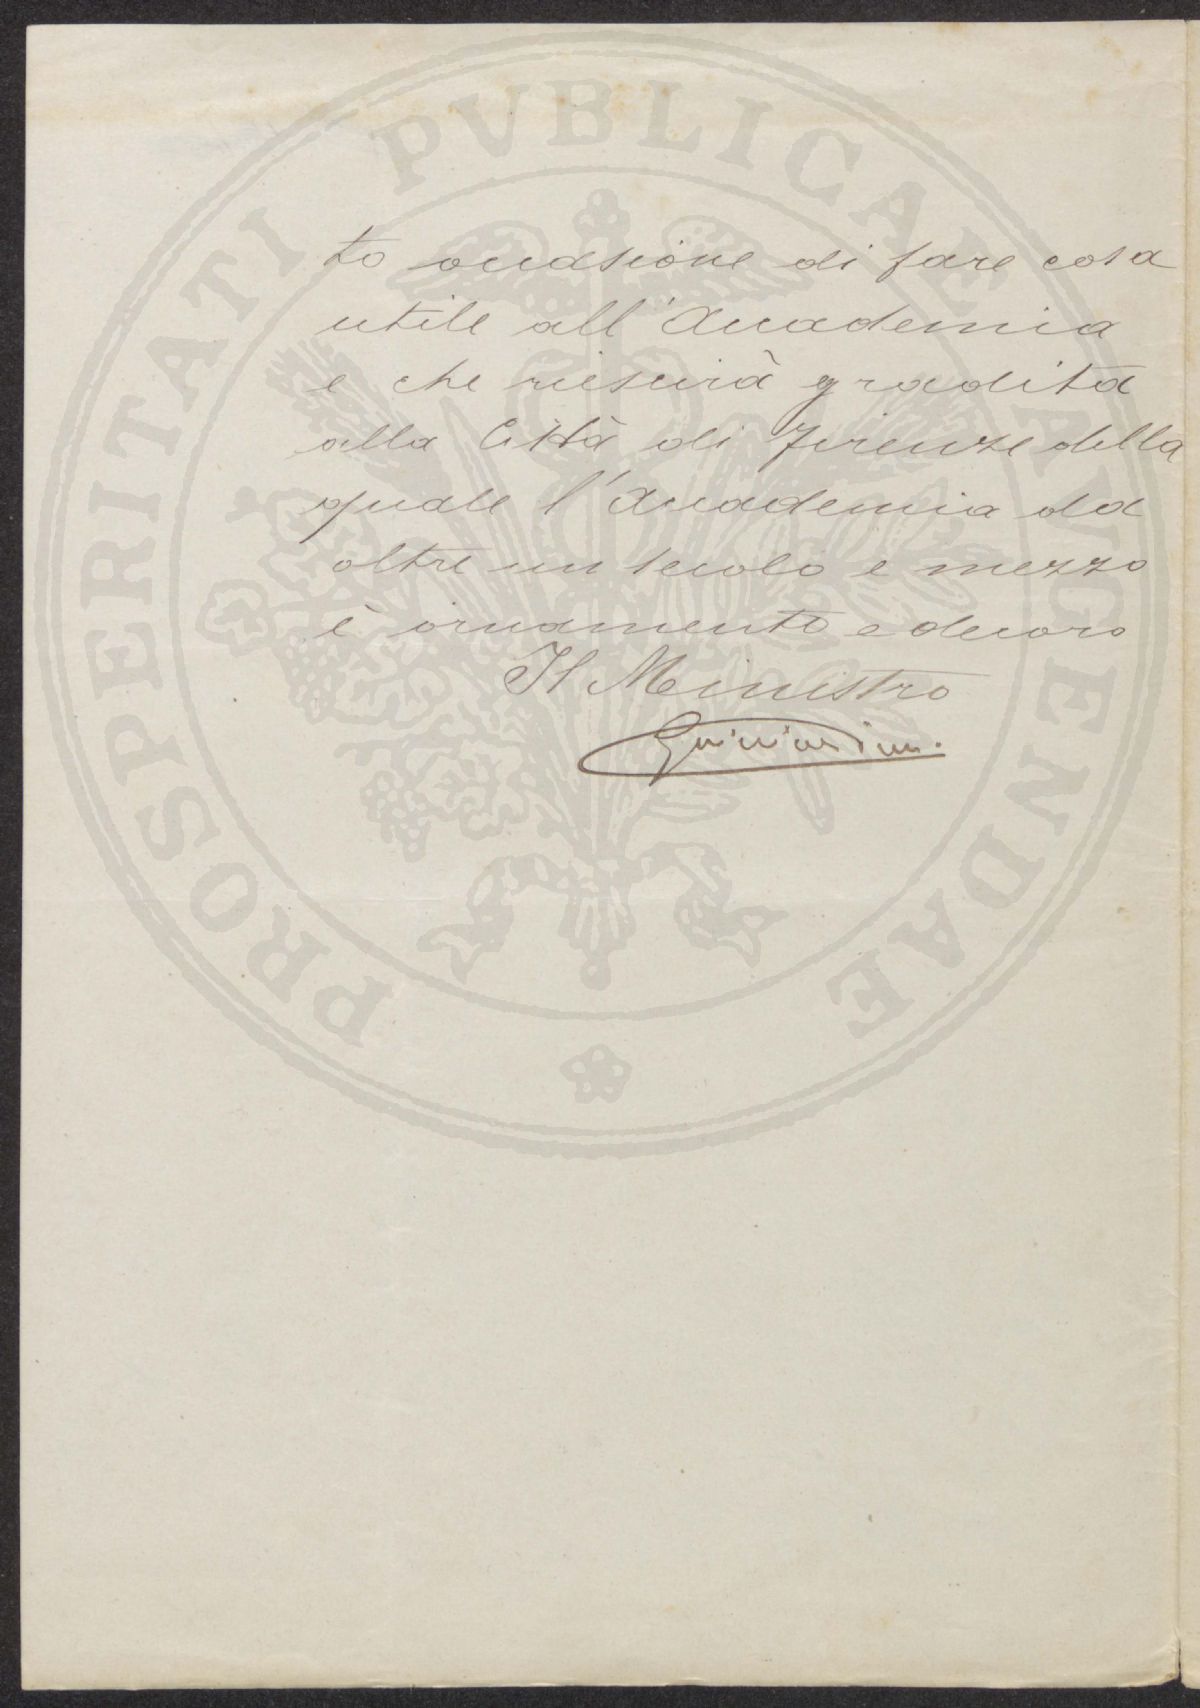 to occasione di fare cosa
utile all'Accademia
e che riescirà gradita
alla Città di Firenze della
quale l'Accademia da
oltre un secolo e mezzo
è ornamento e decoro
Il Ministro
Guicciardini.
PROSPERITATI PVBLICAE AVGENDAE